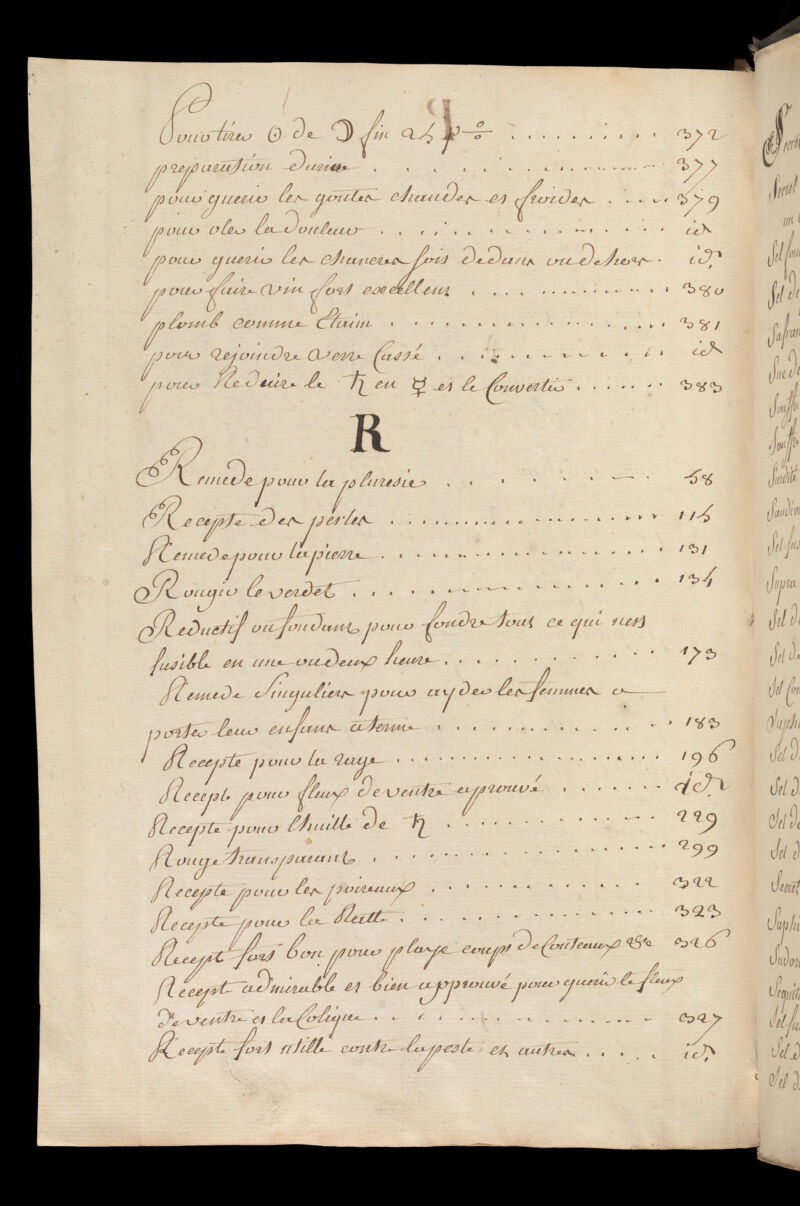 Pour tirer ☉ de ☽ fin 25 p % . . . . . . . . . . 372
preparation durine . . . . . . . . . . . . . . 377
pour guerir les goutes chaudes et froides . . . . . 379
pour oter la douleur . . . . . . . . . . . . . id
pour guerir les chancres soit dedans ou dehors . id.
pour faire vin fort excellent . . . . . . . . . . 380
plomb comme Etaim . . . . . . . . . . . . . . 381
pour rejoindre verre Cassé . . . . . . . . . . id
pour Reduire le ♄ en ☿ et le Convertir . . . . . . . 383
R
Remede pour la pluresie . . . . . . . . 58
Recepte des perles . . . . . . . . . . . . . . 115
Remede pour la pierre . . . . . . . . . . . . . 131
Rougir le verdet . . . . . . . . . . . . . . 134
Reductif ou fondant pour fondre tout ce qui nest
fusible en une ou deux heure . . . . . . . . . . . 173
Remede Singuliers pour ayder les femmes a
porter leur enfant a terme . . . . . . . . . . . 183
Recepte pour la rage . . . . . . . . . . . . . . 196
Recepte pour flux de ventre aprouvé . . . . . . id.
Recepte pour Lhuille de ♄ . . . . . . . . . . . 229
Rouge transparant . . . . . . . . . . . . . . 299
Recepte pour les poireaux . . . . . . . . . . . 322
Recepte pour la Ratte . . . . . . . . . . . . 323
Recept fort bon pour playe coups de Couteaux &c 326
Recept admirable et bien approuvé pour guerir le flux
de ventre et la Colique . . . . . . . . . . . . . 327
Recepte fort utille contre la peste et autres . . . . . id.
Secret
Sel de